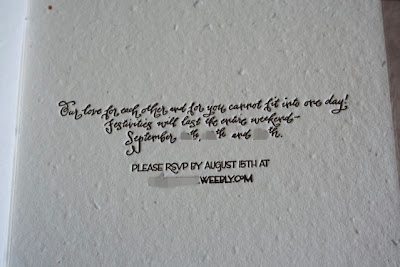 Our love for each other and for you cannot fit into one day!
Festivities will last the entire weekend-
September th, th and th.
PLEASE RSVP BY AUGUST 15TH AT
.WEEBLY.COM